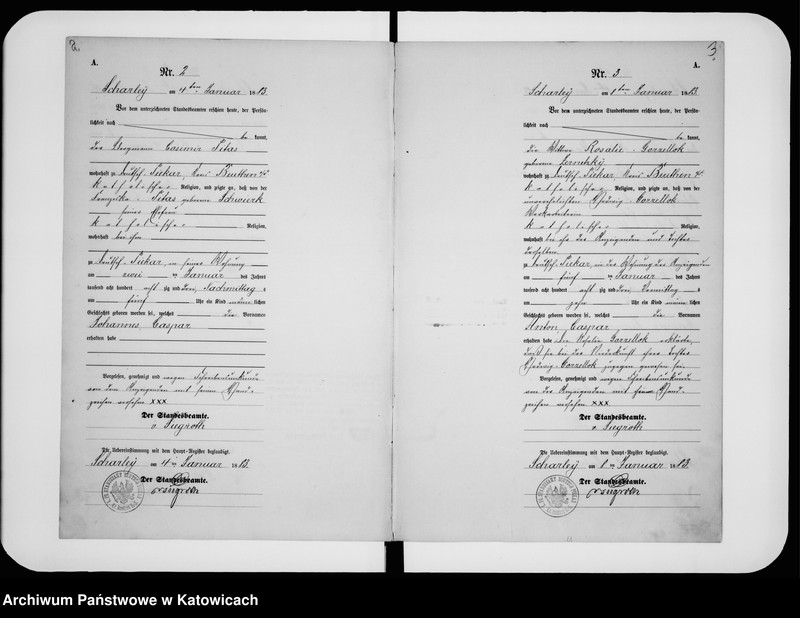 2.
A.
Nr. 2
Scharley am 4ten Januar 1883.
Vor dem unterzeichneten Standesbeamten erschien heute, der Persön-
lichkeit nach
be kannt,
der Bergmann Casimir
wohnhaft zu Deutsch-Piekar, Kreis Beuthen
katholischer Religion, und zeigte an, daß von der
Franziska geborene
seiner Ehefrau
katholischer Religion,
wohnhaft bei ihm
zu Deutsch-Piekar, in seiner Wohnung
am zwei ten Januar des Jahres
tausend acht hundert acht zig und drei, Nachmittag s
um fünf Uhr ein Kind männ lichen
Geschlechts geboren worden sei, welches die Vornamen
Johannes, Caspar
erhalten habe
Vorgelesen, genehmigt und wegen Schreibensunkunde
von dem Anzeigenden mit seinem Hand-
zeichen versehen XXX
Der Standesbeamte.
Die Uebereinstimmung mit dem Haupt-Register beglaubigt.
Scharley am 4ten Januar 1883.
Der Standesbeamte.
3.
A.
Nr. 3
Scharley am Januar 1883
Vor dem unterzeichneten Standesbeamten erschien heute, der Persön-
lichkeit nach
be kannt,
die Wittwe Rosalie Gorzellok
geborene
wohnhaft zu Deutsch-Piekar, Kreis Beuthen
katholischer Religion, und zeigte an, daß von der
unverehelichten Hedwig Gorzellok
katholischer Religion,
wohnhaft bei ihr der Anzeigenden und Mutter
derselben
zu Deutsch-Piekar, in der Wohnung der Anzeigenden
am fünf ten Januar des Jahres
tausend acht hundert acht zig und drei, Vormittag s
um zehn Uhr ein Kind männ lichen
Geschlechts geboren worden sei, welches die Vornamen
Anton, Caspar
erhalten habe Die Rosalie Gorzellok erklärte,
daß sie bei der Niederkunft ihrer Tochter
Hedwig Gorzellok zugegen gewesen sei.
Vorgelesen, genehmigt und wegen Schreibensunkunde
von der Anzeigenden mit Hand-
zeichen versehen XXX
Der Standesbeamte.
Die Uebereinstimmung mit dem Haupt-Register beglaubigt.
Scharley am Januar 1883.
Der Standesbeamte.
Archiwum Państwowe w Katowicach